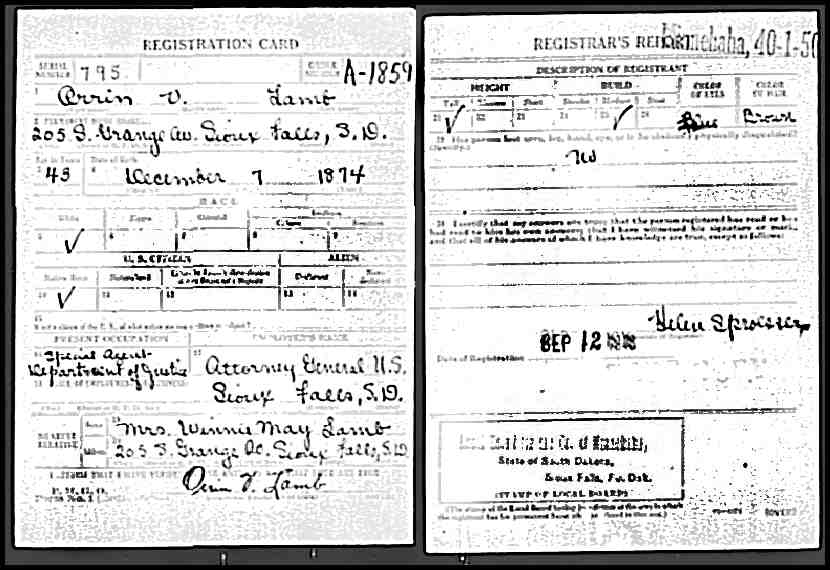 REGISTRATION CARD
SERIAL NUMBER 795
ORDER NUMBER A-1859
1 Orrin V. Lamb
2 PERMANENT HOME ADDRESS
205 S. Grange Av. Sioux Falls, S.D.
Age in Years Date of Birth
3 43 4 December 7 1874
RACE
White Negro Oriental Indian
Citizen Noncitizen
5 ✓ 6 7 8 9
U. S. CITIZEN ALIEN
Native Born Naturalized Declarant Non-declarant
10 ✓ 11 12 13 14
15
PRESENT OCCUPATION EMPLOYER'S NAME
16 Special Agent
Department of Justice 17 Attorney General U.S.
Sioux Falls, S.D.
NEAREST RELATIVE Name 19 Mrs. Winnie May Lamb
Address 20 205 S. Grange Av. Sioux Falls, S.D.
I AFFIRM THAT I HAVE VERIFIED
Orrin V. Lamb
REGISTRAR'S REPORT
Minnehaha, 40-1-50
DESCRIPTION OF REGISTRANT
HEIGHT BUILD COLOR OF EYES COLOR OF HAIR
Tall Medium Short Slender Medium Stout
21 ✓ 22 23 24 25 ✓ 26 Blue Brown
29 Has person lost arm, leg, hand, eye, or is he obviously physically disqualified?
(Specify.)
No
30 I certify that my answers are true; that the person registered has read or has
had read to him his own answers; that I have witnessed his signature or mark,
and that all of his answers of which I have knowledge are true, except as follows:
Helen Sproesser
Date of Registration SEP 12 1918
Local Board for the Co. of Minnehaha,
State of South Dakota,
Sioux Falls, So. Dak.
(STAMP OF LOCAL BOARD)